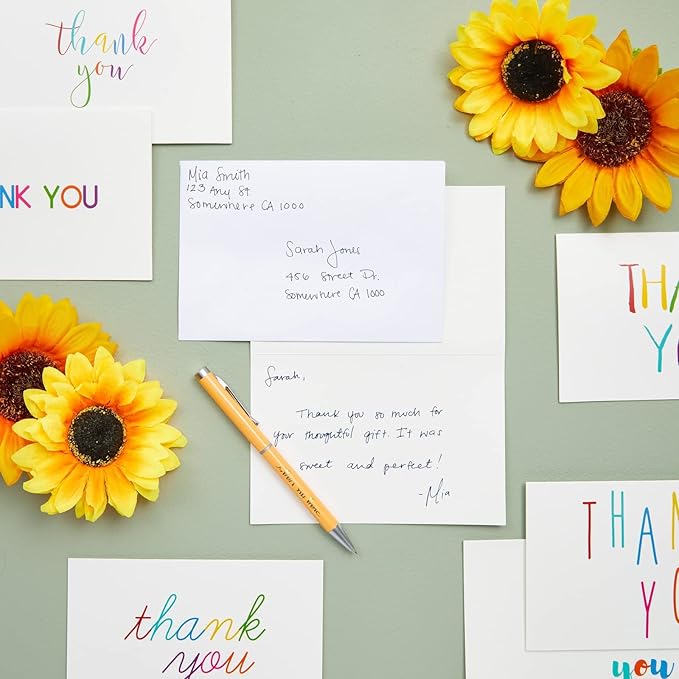 thank
you
NK YOU
Mia Smith
123 Any St.
Somewhere CA 1000
Sarah Jones
456 Street Dr.
Somewhere CA 1000
THA
Y
Sarah,
Thank you so much for
your thougtful gift. It was
sweet and perfect!
-Mia
THAN
YO
thank
you
you